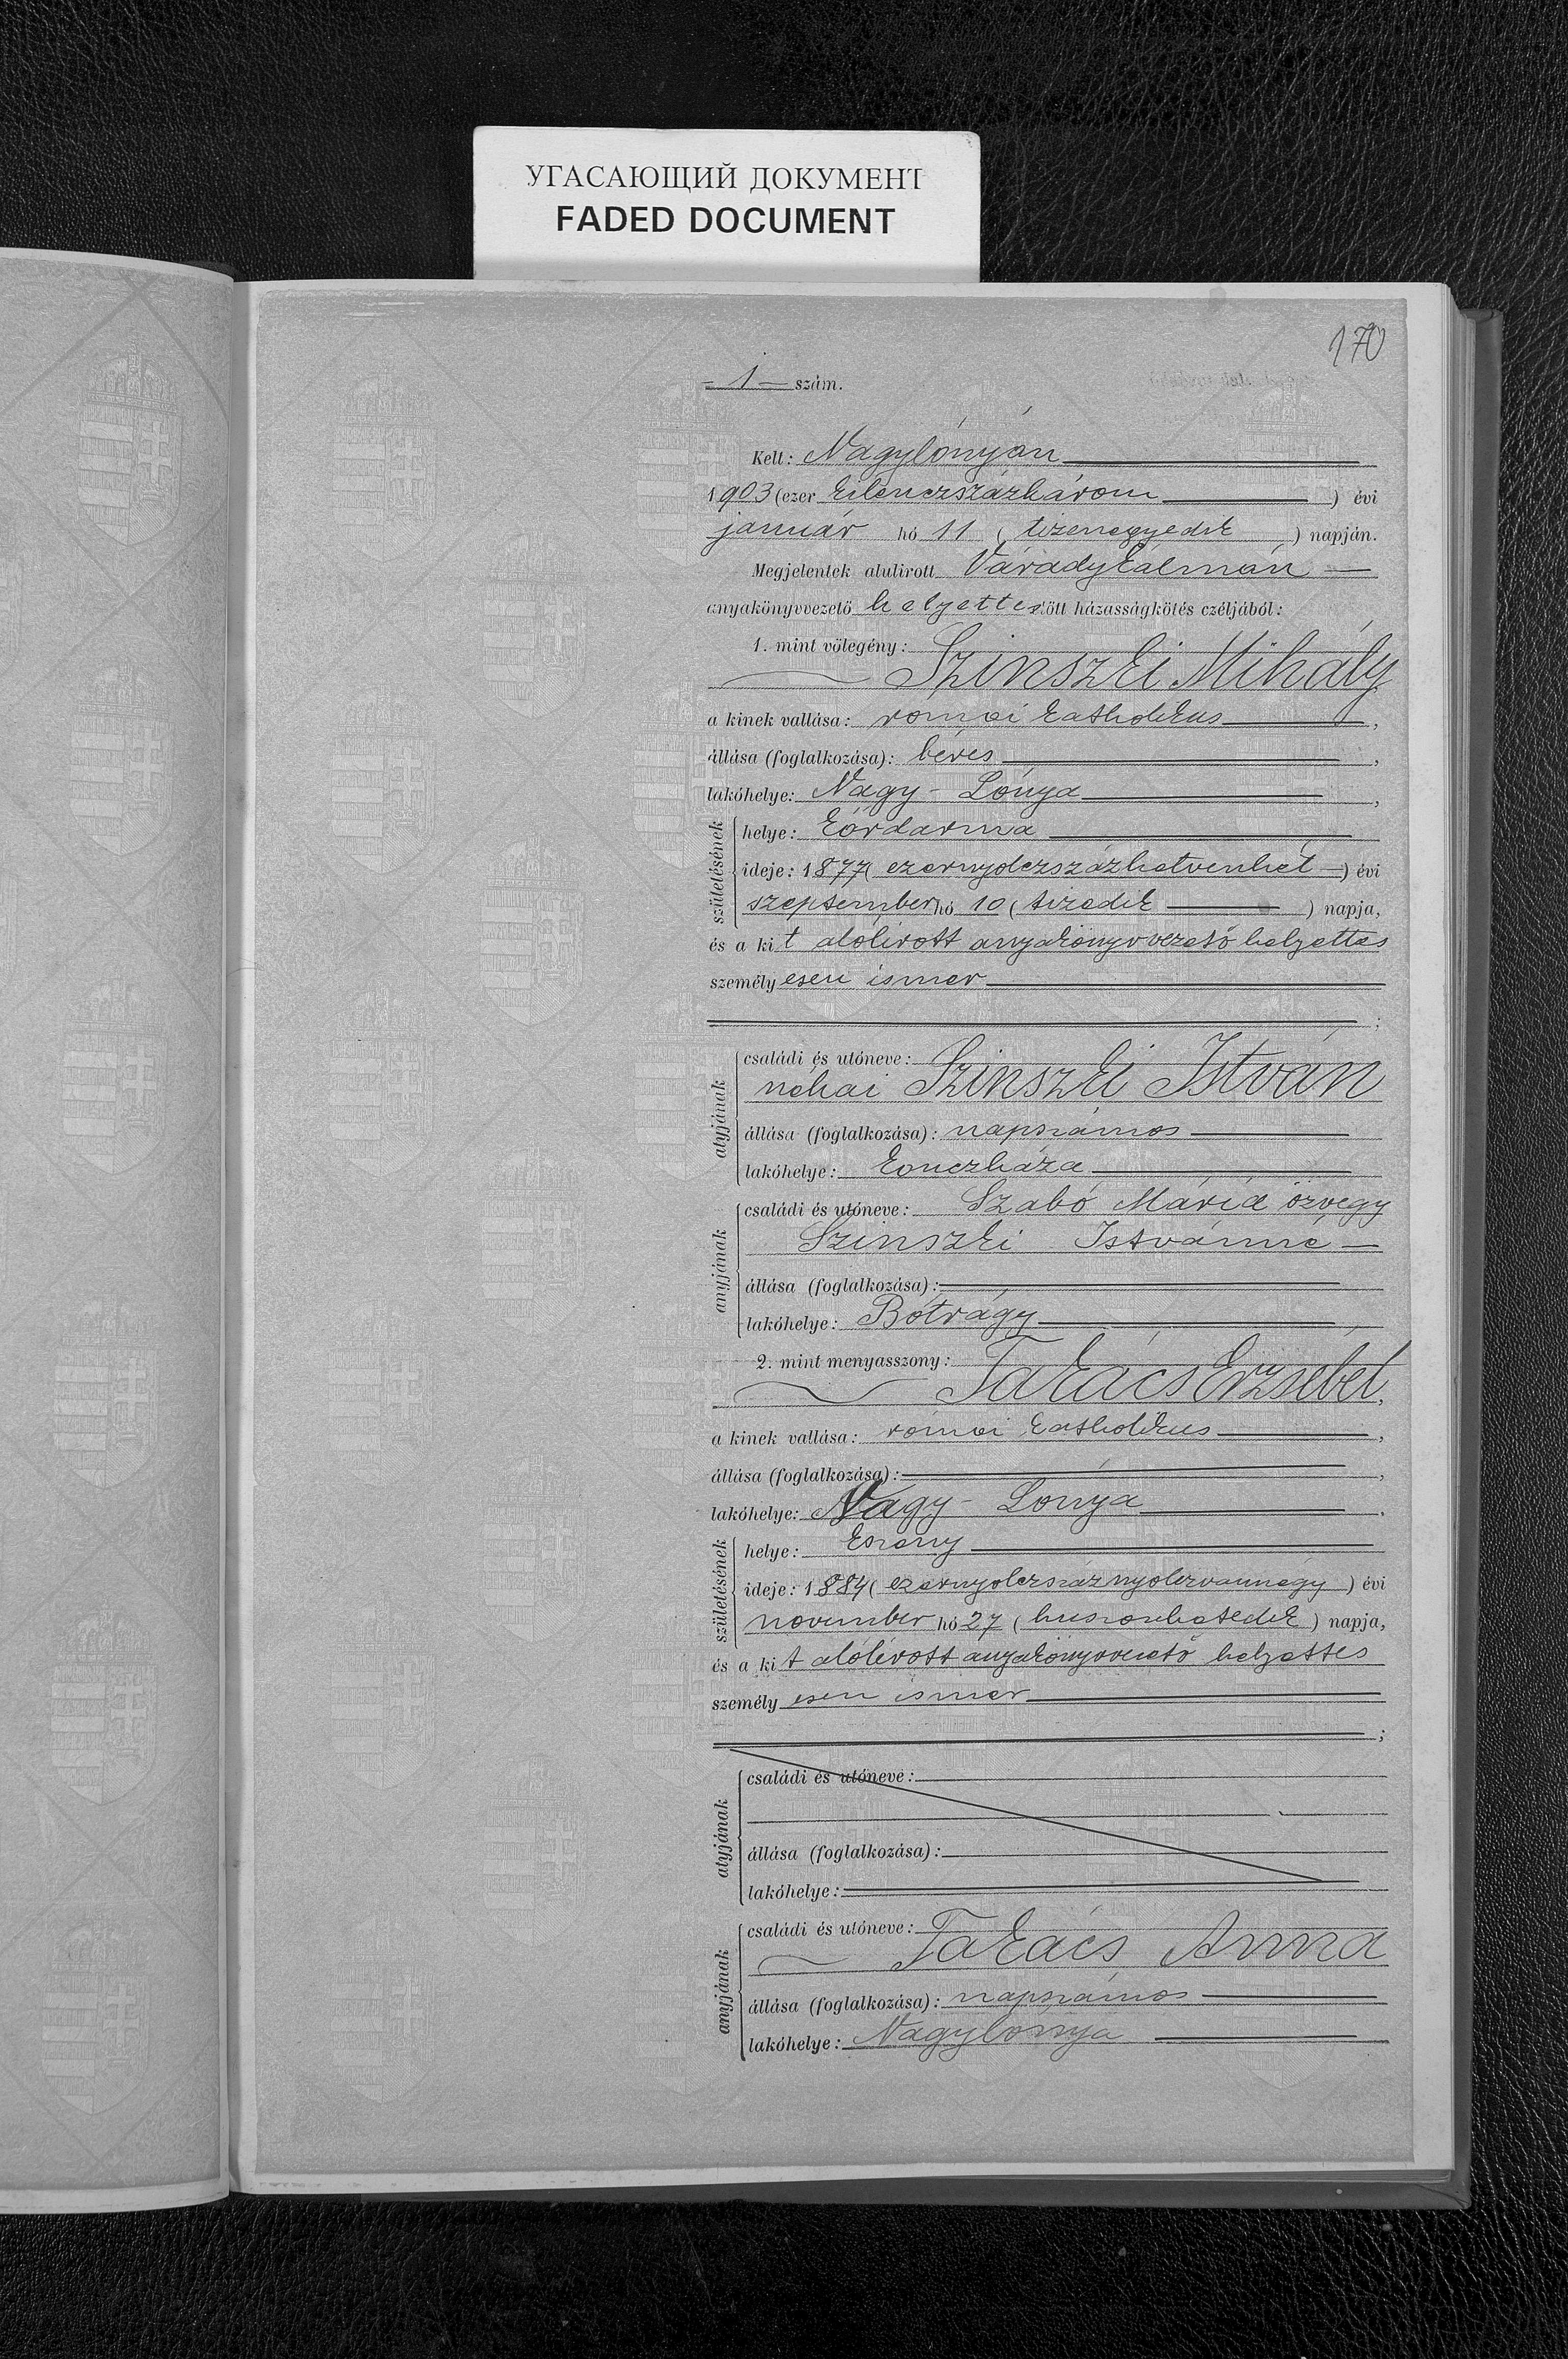 УГАСАЮЩИЙ ДОКУМЕНТ
FADED DOCUMENT
170
1 szám.
Kelt: Nagylónyán
1903 (ezer kilenczszázhárom) évi
január hó 11 (tizenegyedik) napján.
Megjelentek alulirott Várady Kálmán
anyakönyvvezető helyettes előtt házasságkötés czéljából:
1. mint vőlegény:
Szinszki Mihály
a kinek vallása: romai katholikus,
állása (foglalkozása): béres,
lakóhelye: Nagy-Lónya,
születésének
helye: Eördarma
ideje: 1877 (ezernyolczszázhetvenhét) évi
szeptember hó 10 (tizedik) napja,
és a kit alólirott anyakönyvvezető helyettes
személyesen ismer
;
atyjának
családi és utóneve:
néhai Szinszki István
állása (foglalkozása): napszámos
lakóhelye: Konczháza
anyjának
családi és utóneve: Szabó Mária özvegy
Szinszki Istvánné
állása (foglalkozása):
lakóhelye: Bótrágy
2. mint menyasszony:
Takács Erzsébet,
a kinek vallása: római katholikus,
állása (foglalkozása):,
lakóhelye: Nagy-Lonya,
születésének
helye: Eszeny
ideje: 1884 (ezernyolczszáznyolczvannégy) évi
november hó 27 (huszonhetedik) napja,
és a kit alólirott anyakönyvvezető helyettes
személyesen ismer
;
atyjának
családi és utóneve:
állása (foglalkozása):
lakóhelye:
anyjának
családi és utóneve:
Takács Anna
állása (foglalkozása): napszámos
lakóhelye: Nagylónya